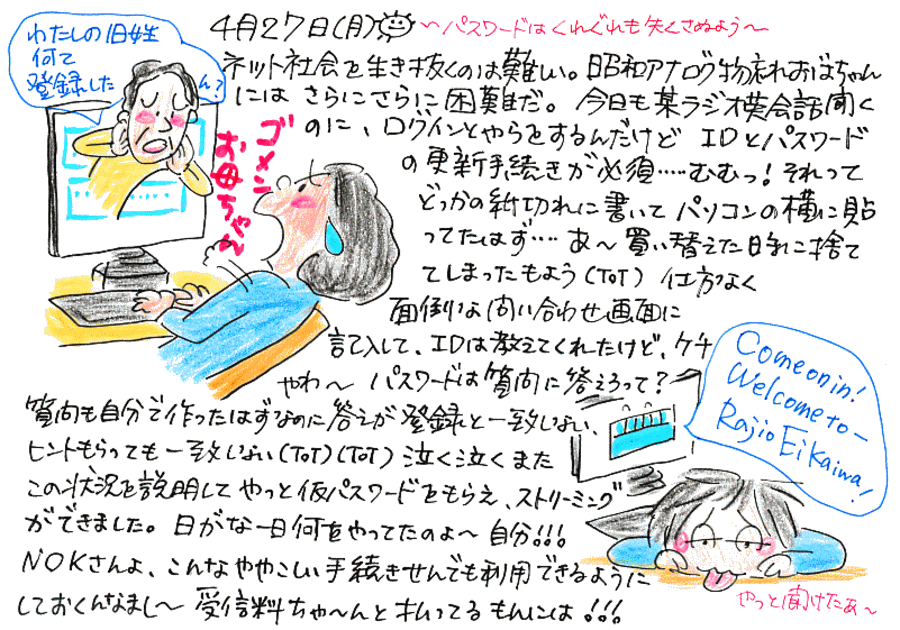 4月27日(月) ～パスワードはくれぐれも失くさぬよう～
わたしの旧姓
何て
登録した
ん?
ネット社会を生き抜くのは難しい。昭和アナログ物忘れおばちゃん
には さらにさらに困難だ。 今日も某ラジオ英会話聞く
のに、ログインとやらをするんだけど IDとパスワード
の更新手続きが必須……むむっ! それって
どっかの紙切れに書いて パソコンの横に貼
ってたはず…. あ～買い替えた時に捨て
てしまったもよう(ToT) 仕方なく
面倒な問い合わせ画面に
記入して、IDは教えてくれたけど、ケチ
やわ～ パスワードは質問に答えろって?
ゴメン
お母ちゃん
質問も自分で作ったはずなのに答えが登録と一致しない、
ヒントもらっても一致しない(ToT)(ToT) 泣く泣くまた
この状況を説明して やっと仮パスワードをもらえ、ストリーミング
ができました。日がな一日何をやってたのよ～自分!!!
NOKさんよ、こんなややこしい手続きせんでも利用できるように
しておくんなまし～ 受信料ちゃ～んと払ってるもんには!!!
Come on in!
Welcome to-
Rajio Eikaiwa!
やっと聞けたぁ～